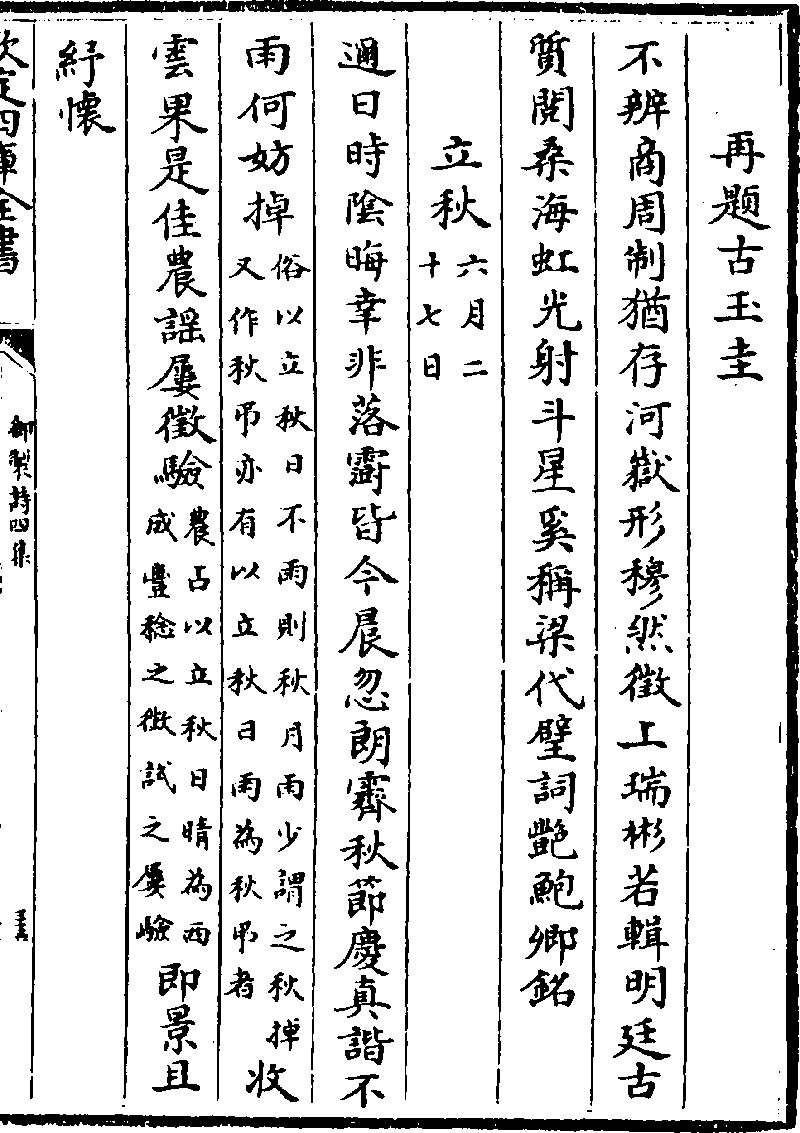 再題古玉圭
不辨商周制猶存河嶽形穆然徵上瑞彬若輯明廷古
質閱桑海虹光射斗星奚稱梁代璧詞艶鮑卿銘
立秋六月二十七日
過日時陰晦幸非落皆今晨忽朗霽秋節慶真諧不
雨何妨掉俗以立秋日不雨則秋月雨少謂之秋掉又作秋吊亦有以立秋日雨為秋吊者收
雲果是佳農謡屢徵驗農占以立秋日晴為西成豐稔之徵試之屢驗即景且
紓懷
欽定四庫全書
御製詩四集